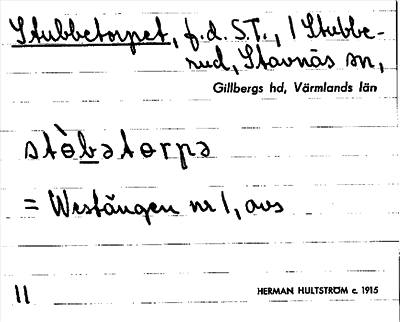 Stubbetorpet, f.d. S.T., 1 Stubbe-
rud, Stavnäs sn,
Gillbergs hd, Värmlands län
stòbatorpə
= Westängen nr 1, avs
11
HERMAN HULTSTRÖM c. 1915